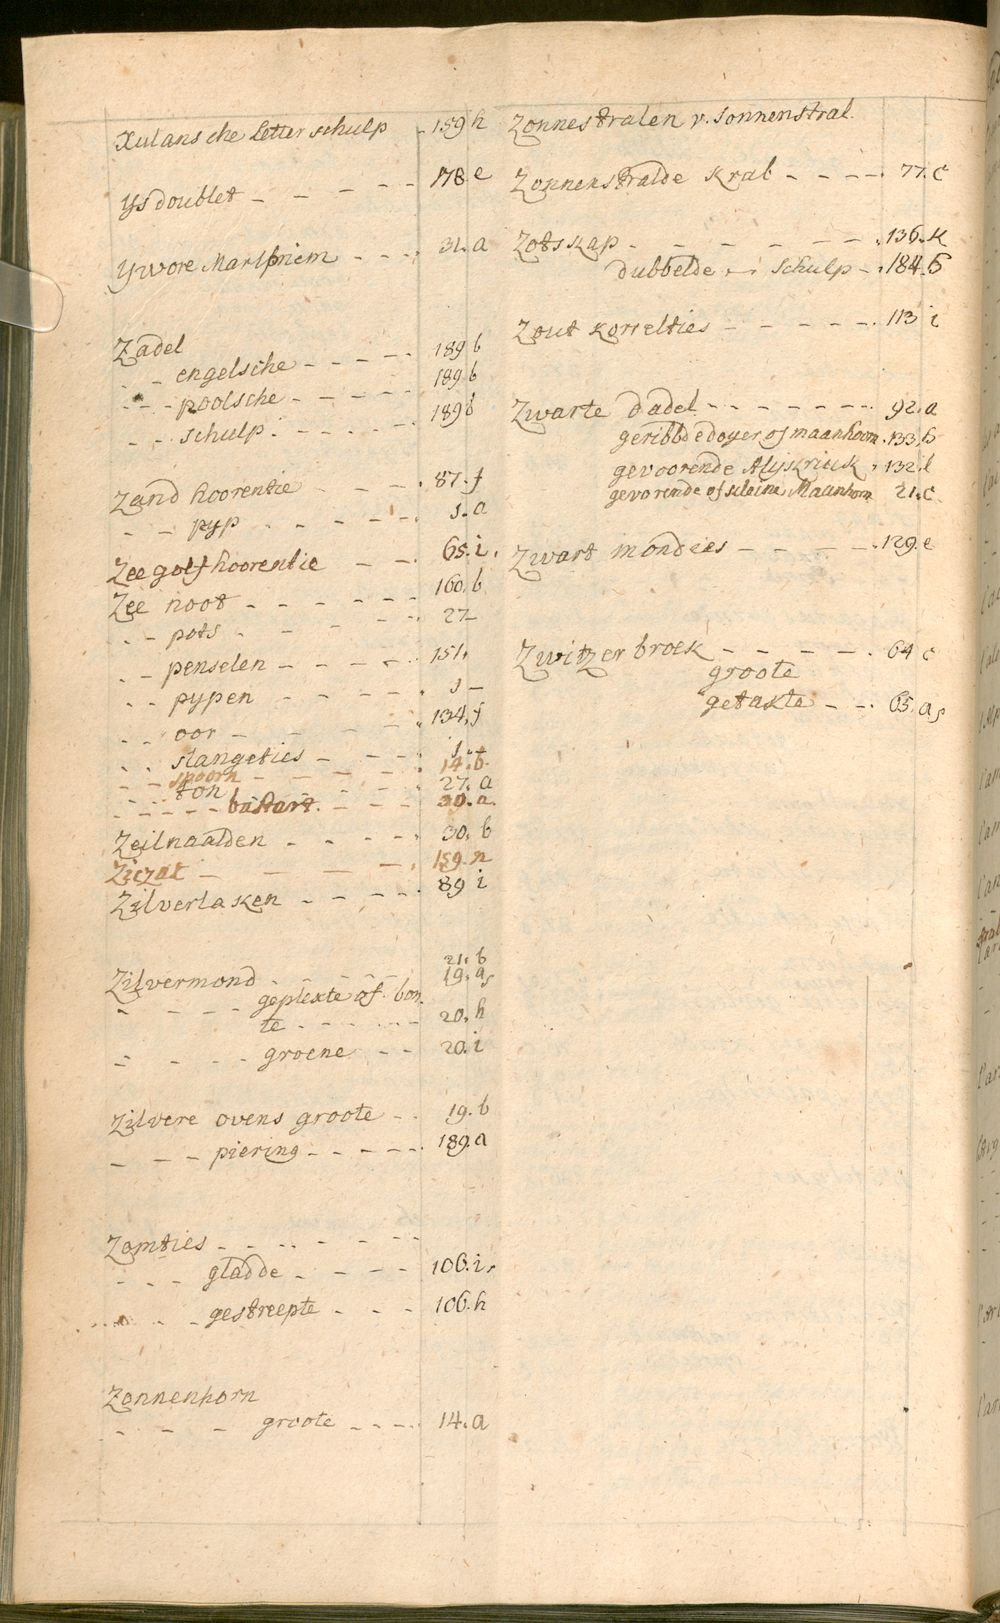 Xulansche Letterschulp . 159 h
Ysdoublet - - - - - - 178 e
Ywore Marlpriem - - - . 31. a
Zadel
- - engelsche - - - - - 189 b
- - poolsche - - - - - 189. b
- - schulp. - - - - - 189 b
Zand hoorentie - - . 87. f
- - pyp - - - - - . 1. a
Zee golf hoorentie - - . 65. i.
Zee noot - - - - - - 160. b
- - pots - - - - - . 27 -
- - penselen - - - - . 151.
- - pypen - - - - - . 1 -
- - oor - - - - - . 134. f
- - slangeties - - - - 1. +
- - spoorn - - - - - . 14. b.
- - ton - - - - - . 27. a
- - - - - bastart. - - - - 30. a.
Zeilnaalden - - - - . 30. b
Ziczak - - - - . 159. n
Zilverlaken - - - - - 89 i
21. b
Zilvermond - - - - - 19. a,
- - - - geplekte of bon-
te - - - - - - 20. h
- - - - groene - - 20. i
Zilvere ovens groote - . 19. b
- - - piering - - - - - 189. a
Zomties - - - - - - -
- - - gladde - - - - 106. i.
- - - - gestreepte - - - 106. h
Zonnenhorn
- - - groote - - - - 14. a
Zonnestralen v. sonnenstral.
Zonnenstralde Krab - - - - . 77. c
Zotskap - - - - - - - . 136. K
dubbelde - - schulp - . 184. b
Zout korrelties - - - - - . 113 i
Zwarte dadel - - - - - - - . 92. a
geribbde doyer of maanhoorn . 133 h
gevoorende Alijkriuk . 132 l
gevorende of kleine Maanhorn 21. c.
Zwart mondees - - - - - . 129. e
Zwitzer broek - - - - - . 64 c
groote
getakte - - . 65. a,